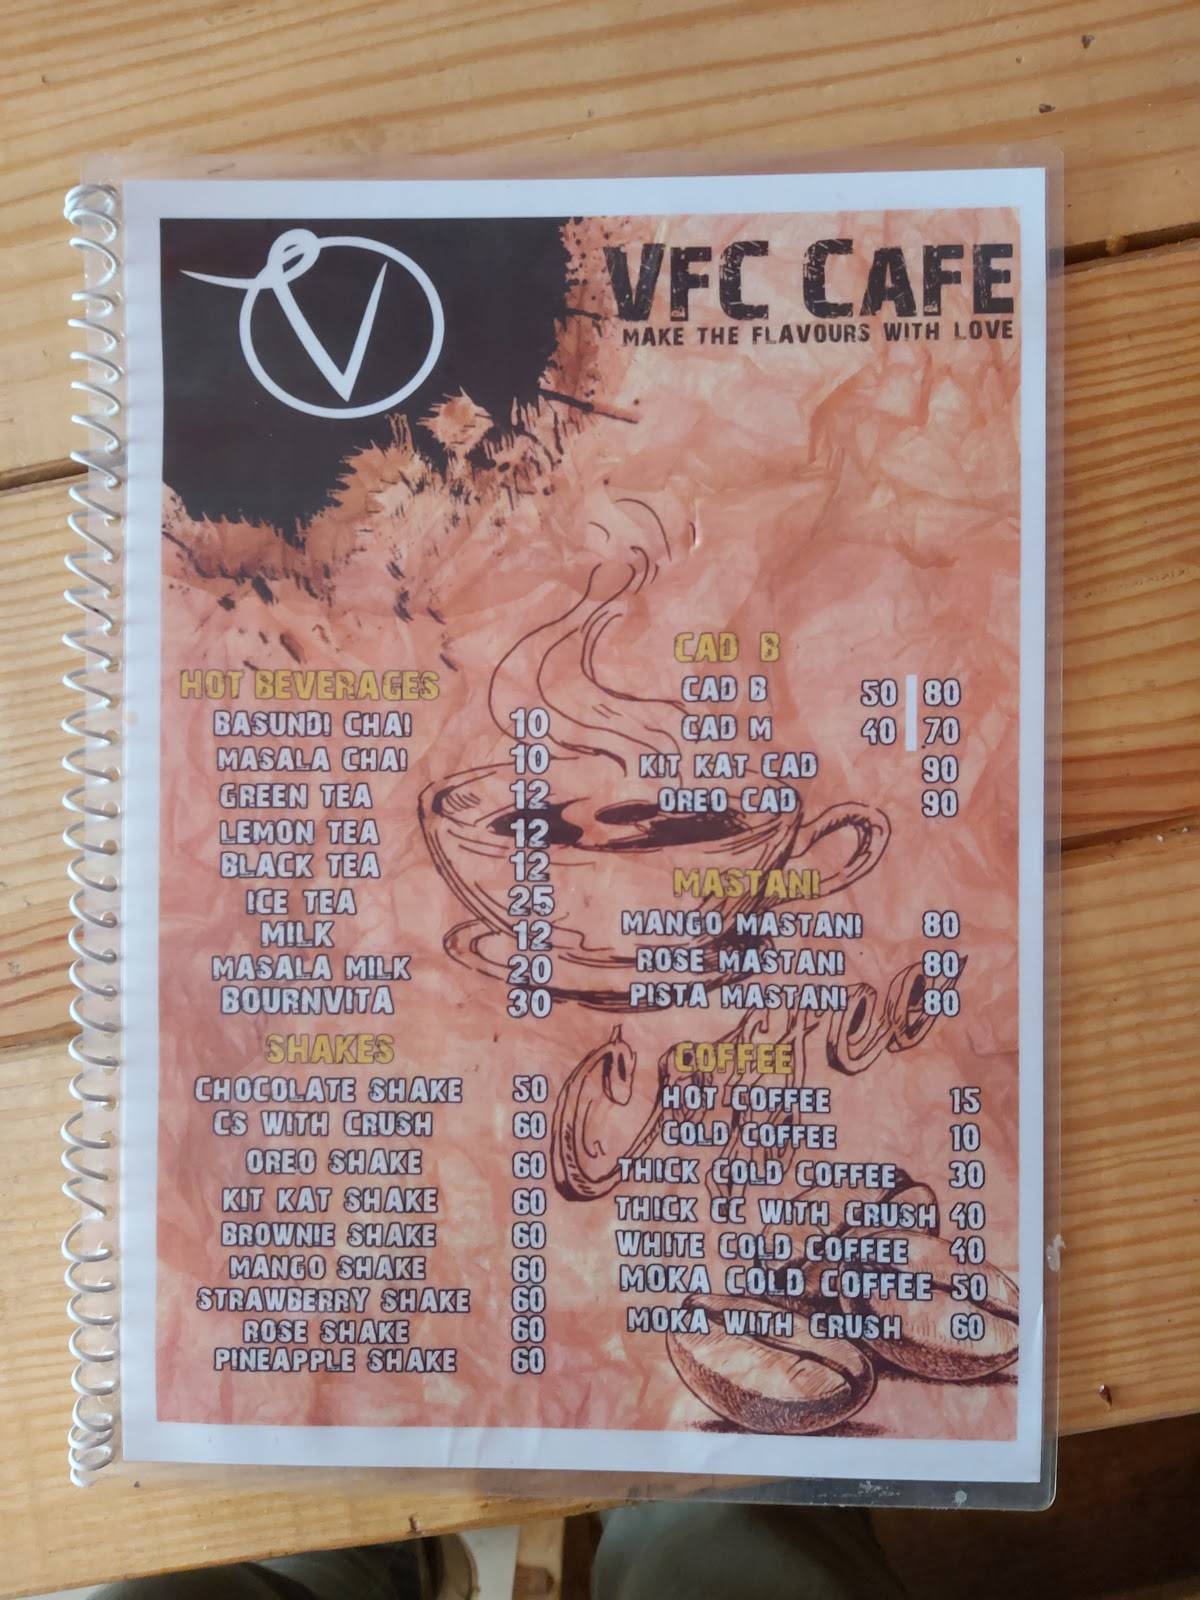 V
VFC CAFE
MAKE THE FLAVOURS WITH LOVE
HOT BEVERAGES
BASUNDI CHAI 10
MASALA CHAI 10
GREEN TEA 12
LEMON TEA 12
BLACK TEA 12
ICE TEA 25
MILK 12
MASALA MILK 20
BOURNVITA 30
SHAKES
CHOCOLATE SHAKE 50
CS WITH CRUSH 60
OREO SHAKE 60
KIT KAT SHAKE 60
BROWNIE SHAKE 60
MANGO SHAKE 60
STRAWBERRY SHAKE 60
ROSE SHAKE 60
PINEAPPLE SHAKE 60
CAD B
CAD B 50 | 80
CAD M 40 | 70
KIT KAT CAD 90
OREO CAD 90
MASTANI
MANGO MASTANI 80
ROSE MASTANI 80
PISTA MASTANI 80
COFFEE
HOT COFFEE 15
COLD COFFEE 10
THICK COLD COFFEE 30
THICK CC WITH CRUSH 40
WHITE COLD COFFEE 40
MOKA COLD COFFEE 50
MOKA WITH CRUSH 60
Coffee